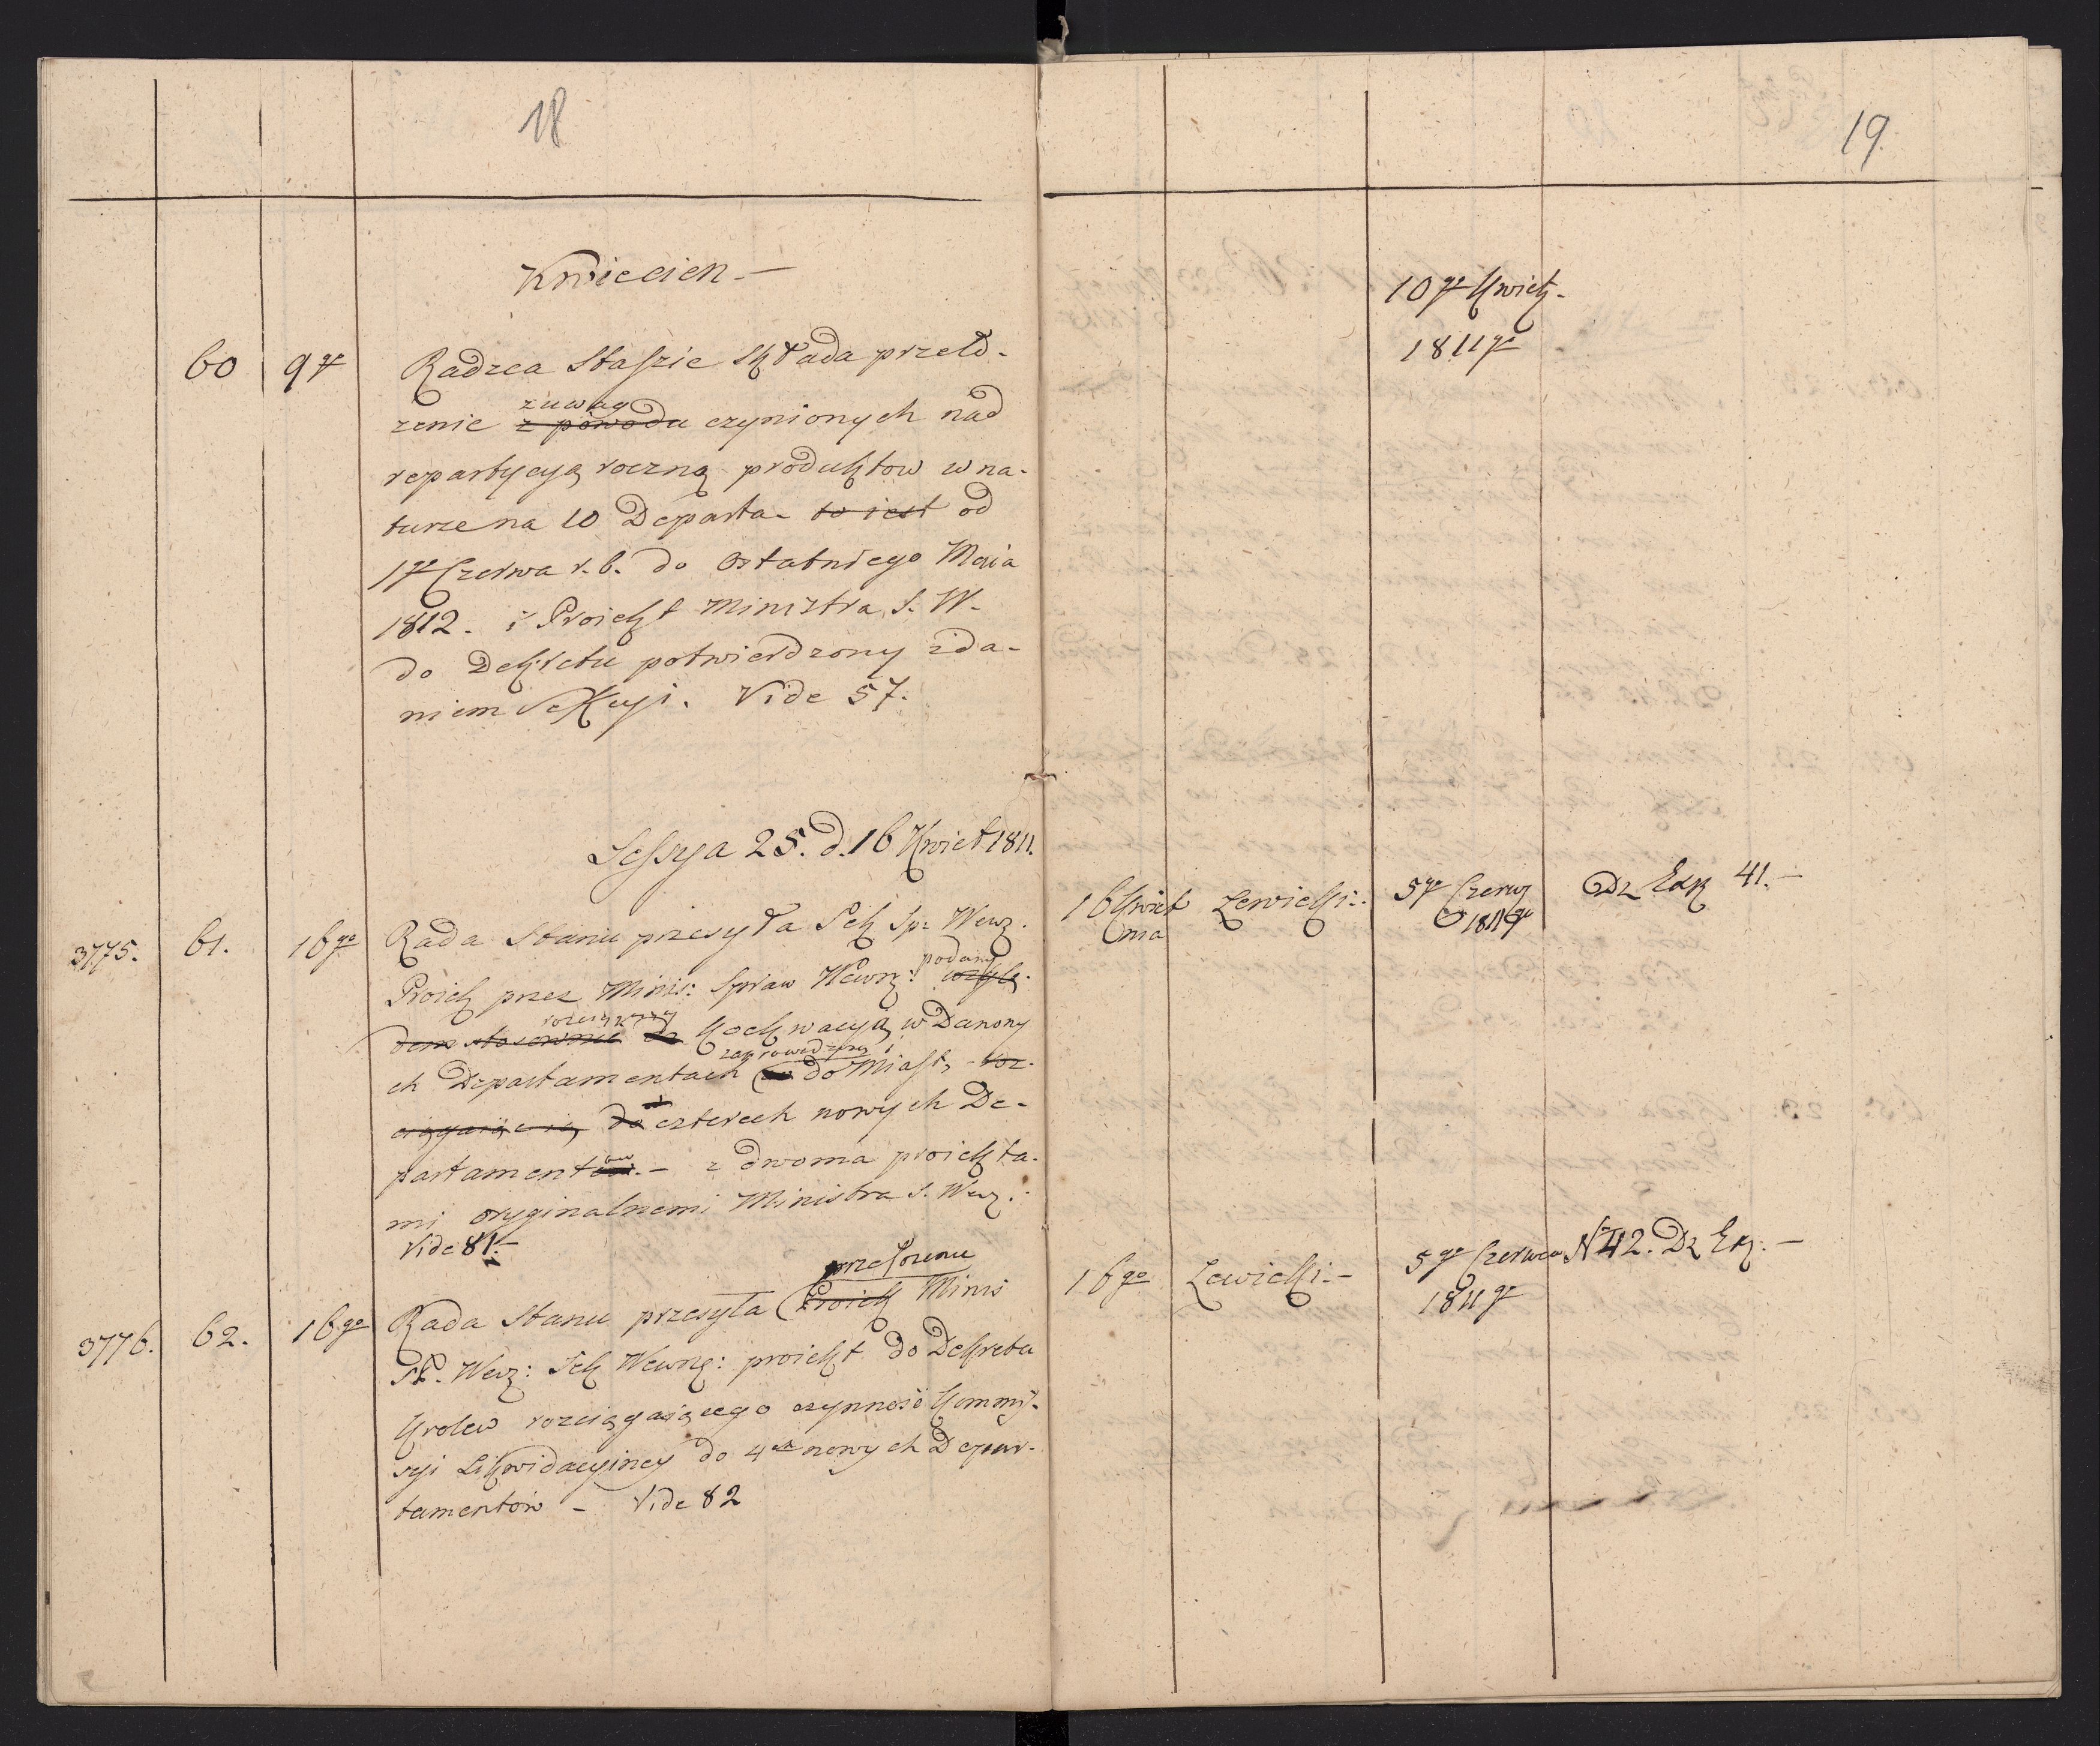 18
Kwiecien. —
60 9go Radzca Staszic składa przeło-
zuwag
zenie z powodu czynionych nad
repartycyą roczną produktow w na-
turze na 10 Departa- to iest od
1go Czerwca r. b. do Ostatniego Maia
1812. i Proiekt Ministra S. W.
do Dekretu potwierdzony zda-
niem Sekcyi. Vide 57.
Sessya 25. d. 16 Kwiet 1811.
3775. 61. 16go Rada Stanu przesyła Sek Sp: Wewz.
podany
Proiek przez Minis: Spraw Wewn: wzglę-
dem stosownie do w Dawny
ch Departamentach do Miast, roz-
ciągaiącą do czterech nowych De-
partamentów. — z dwoma proiekta-
mi oryginalnemi Ministra S. Wewz.:
Vide 81. —
przełożenie
3776. 62. 16go Rada Stanu przesyła Proiek Minis
SP. Wewz: Sek Wewnę: proiekt do Dekretu
Krolew rozciągaiącego czynność Kommi-
syi Likwidacyiney do 4ch nowych Depar-
tamentów — Vide 82
19.
10go Kwietn.
1811go
16 Kwiet Lewicki: 5go Czerwc Dz Exp 41. —
nia 1811go
16go Lewicki: — 5go Czerwca N 42. Dz Ex: —
1811go